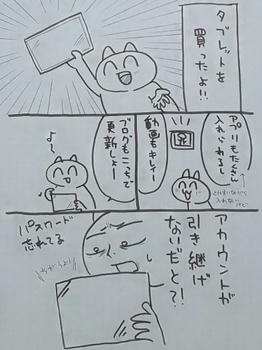 タブレットを
買ったよ!!
アプリもたくさん
入れられるし
動画もキレイ
ブログもこっちで
更新しよー
よ〜
アカウントが
引き継げ
ないだと?!
パスワード
忘れてる